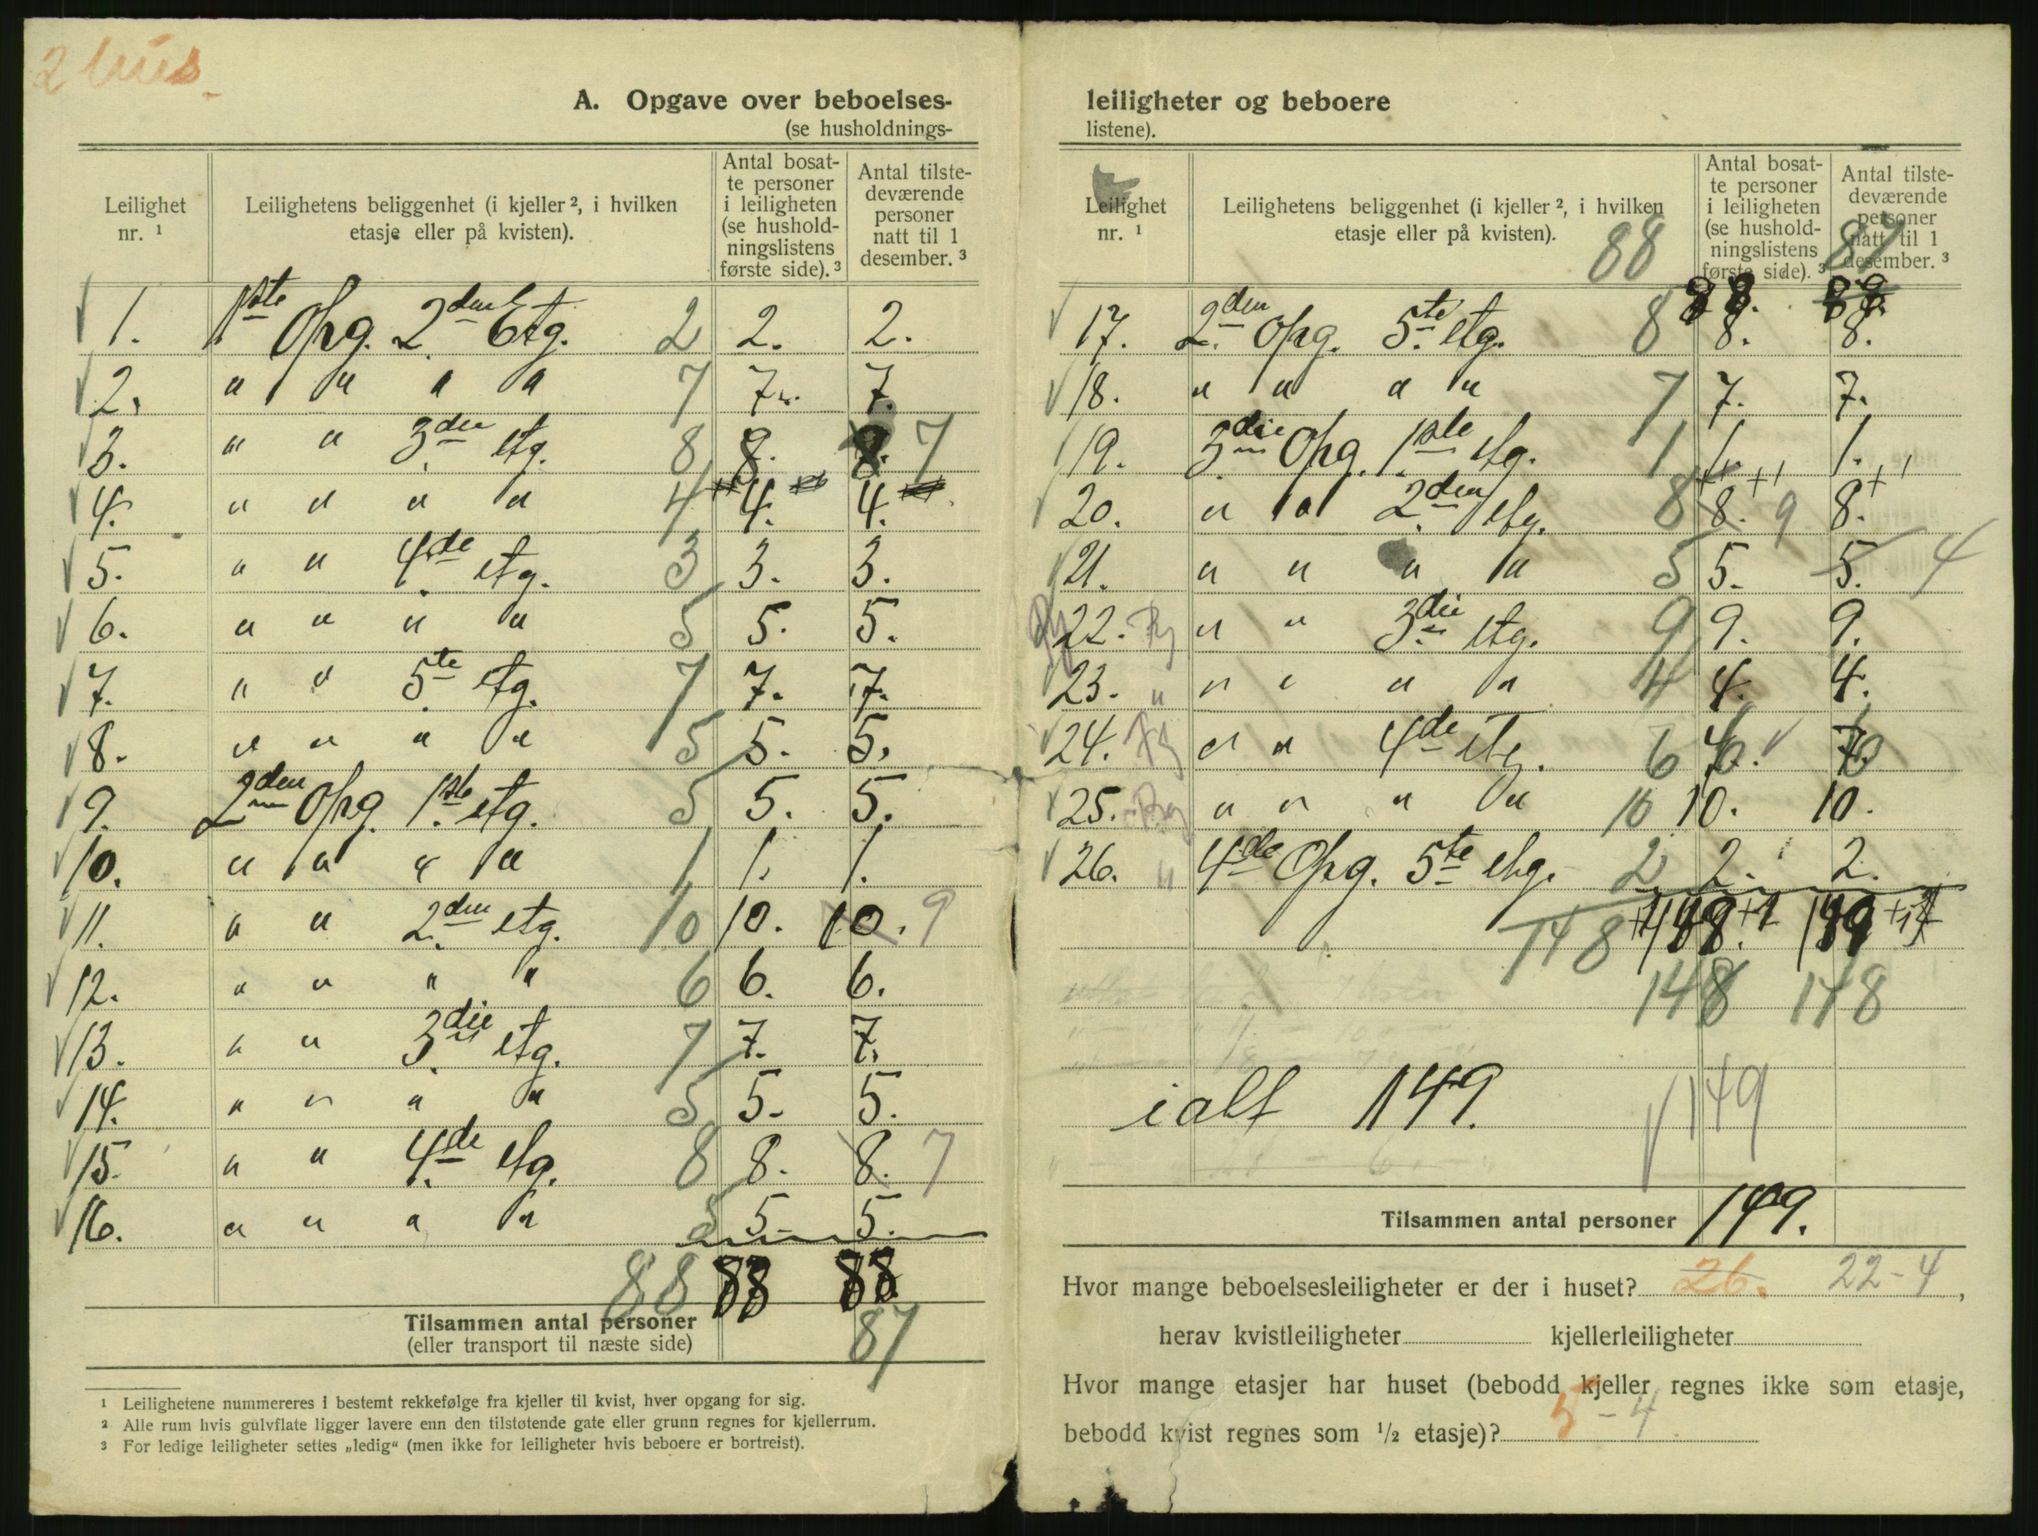 2 hus.
A. Opgave over beboelses-
(se husholdnings-
Leilighet nr. ¹ | Leilighetens beliggenhet (i kjeller ², i hvilken etasje eller på kvisten). | Antal bosat-te personer i leiligheten (se hushold-ningslistens første side). ³ | Antal tilste-deværende personer natt til 1 desember. ³
✓ 1. 1ste Opg. 2den Etg. 2 2. 2.
✓ 2. " " " " 7 7. 7.
✓ 3. " " 3die etg. 8 8. 8. 7
✓ 4. " " " " 4 4. 4.
✓ 5. " " 4de etg. 3 3. 3.
✓ 6. " " " " 5 5. 5.
✓ 7. " " 5te etg. 7 7. 7.
✓ 8. " " " " 5 5. 5.
✓ 9. 2den Opg. 1ste etg. 5 5. 5.
✓ 10. " " " " 1 1. 1.
✓ 11. " " 2den etg. 10 10. 10. 9
✓ 12. " " " " 6 6. 6.
✓ 13. " " 3die etg. 7 7. 7.
✓ 14. " " " " 5 5. 5.
✓ 15. " " 4de etg. 8 8. 8. 7
✓ 16. " " " " 5 5. 5.
88 88 88
Tilsammen antal personer
(eller transport til næste side) 87
¹ Leilighetene nummereres i bestemt rekkefølge fra kjeller til kvist, hver opgang for sig.
² Alle rum hvis gulvflate ligger lavere enn den tilstøtende gate eller grunn regnes for kjellerrum.
³ For ledige leiligheter settes „ledig“ (men ikke for leiligheter hvis beboere er bortreist).
leiligheter og beboere
listene).
Leilighet nr. ¹ | Leilighetens beliggenhet (i kjeller ², i hvilken etasje eller på kvisten). | Antal bosat-te personer i leiligheten (se hushold-ningslistens første side). ³ | Antal tilste-deværende personer natt til 1 desember. ³
88 87
88. 88.
✓ 17. 2den Opg. 5te etg. 8 8. 8.
✓ 18. " " " " 7 7. 7.
✓ 19. 3die Opg. 1ste etg. 1 1. 1.
✓ 20. " " 2den etg. 8 8. +1 9 8. +1
✓ 21. " " " " 5 5. 5. 4
22. " " 3die etg. 9 9. 9.
23. " " " " " 4 4. 4.
✓ 24. " " 4de etg. 6 6. ✓
✓ 25. " " " " 10 10. 10.
✓ 26. " 4de Opg. 5te etg. 2 2. 2.
148
148 148
i alt 149. ✓ 149
Tilsammen antal personer 149.
Hvor mange beboelsesleiligheter er der i huset? 26. 22 - 4,
herav kvistleiligheter kjellerleiligheter
Hvor mange etasjer har huset (bebodd kjeller regnes ikke som etasje,
bebodd kvist regnes som ½ etasje)? 5 - 4